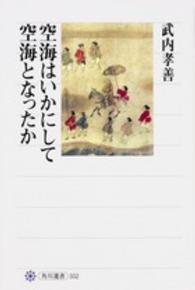 武内孝善
空海はいかにして
空海となったか
角川選書
552